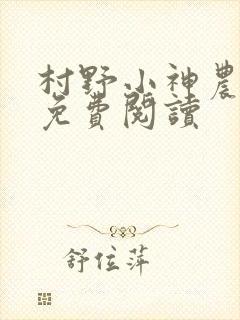 村野小神農
免費閱讀
舒位萍